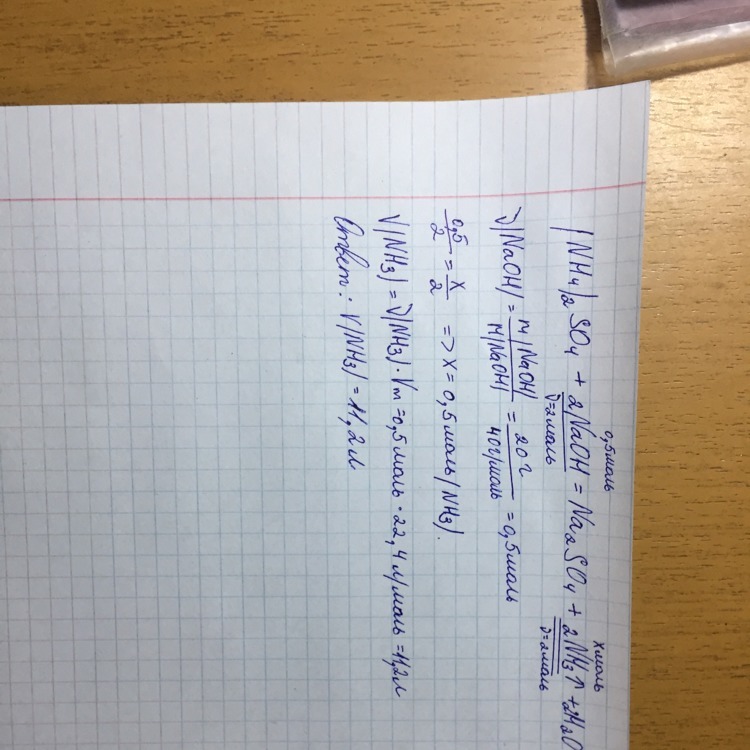 0,5моль хмоль
(NH₄)₂SO₄ + 2NaOH = Na₂SO₄ + 2NH₃↑ + 2H₂O
ν=2моль ν=2моль
ν(NaOH) = m(NaOH)/M(NaOH) = 20г/40г/моль = 0,5моль
0,5/2 = x/2 => x = 0,5моль(NH₃).
V(NH₃) = ν(NH₃)·Vm = 0,5моль·22,4л/моль = 11,2л
Ответ: V(NH₃) = 11,2л